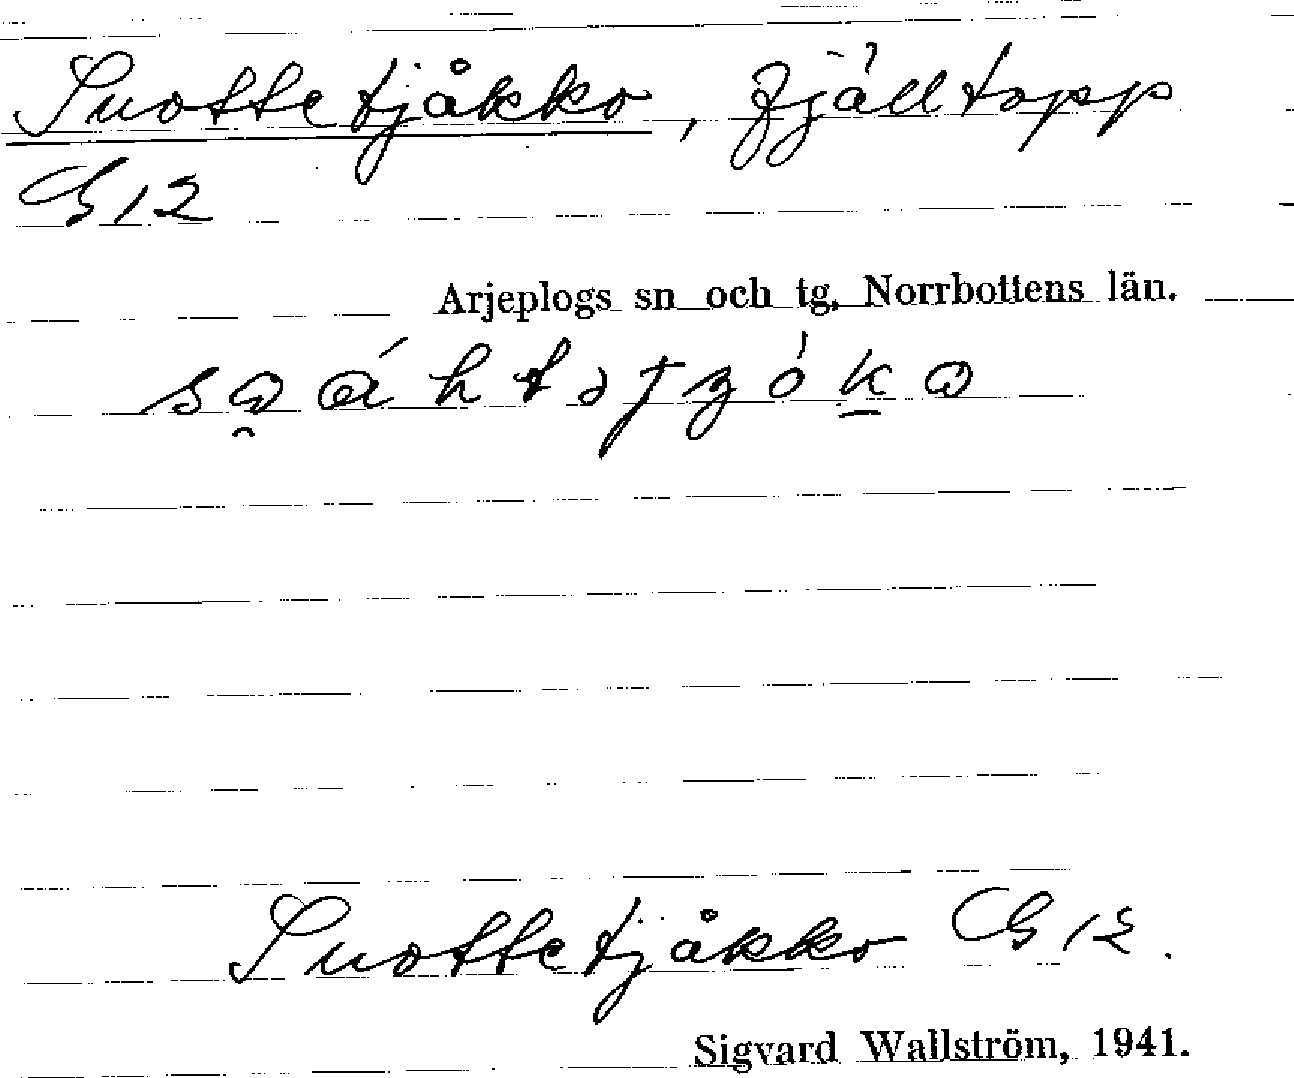 Suottetjåkko, fjälltopp
G 12
Arjeplogs sn och tg. Norrbottens län.
Suottetjåkko G 12.
Sigvard Wallström, 1941.